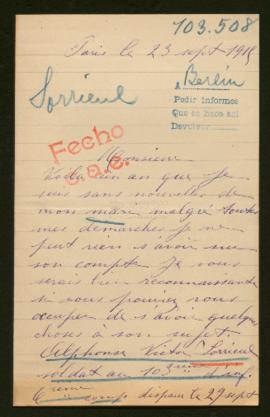 103.508
Paris le 23 sept 1915
Sorrieul
A Berlin
Pedir informes
Que se hace aci
Devolver
Fecho
Monsieur
Voila un an que je
suis sans nouvelles de
mon mari malgré toutes
mes démarches je ne
peut rien savoir sur
son compte Je vous
serais bien reconnaissante
si vous pouvez vous
occuper de savoir quelque
chose à son sujet
Alphonse Victor Sorrieul
soldat au 103eme d'inf.
comp disparu le 29 sept